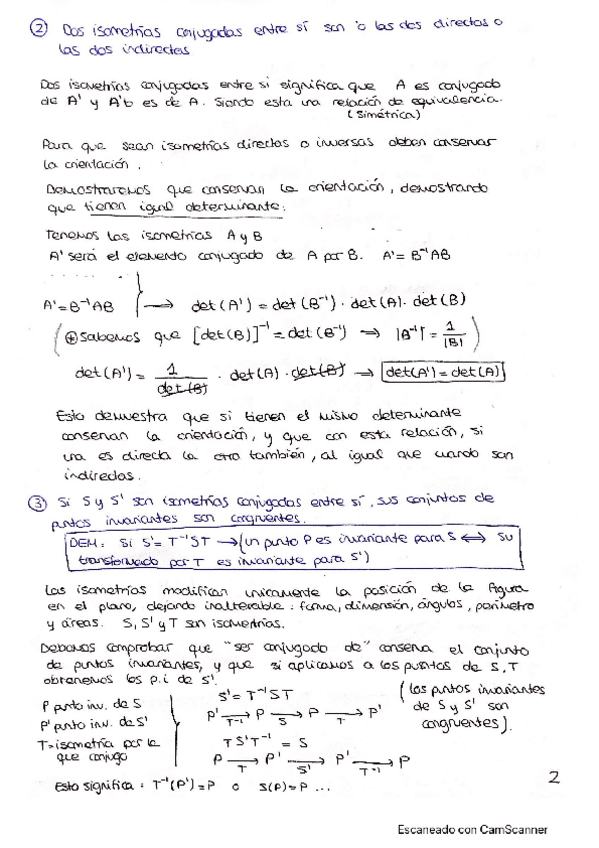 ② Dos isometrías conjugadas entre sí son o las dos directas o
las dos indirectas
Dos isometrías conjugadas entre si significa que A es conjugado
de A' y A' lo es de A. Siendo esta una relación de equivalencia.
(simétrica)
Para que sean isometrías directas o inversas deben conservar
la orientación.
Demostraremos que conservan la orientación, demostrando
que tienen igual determinante:
Tenemos las isometrías A y B
A' será el elemento conjugado de A por B. A' = B⁻¹AB
A' = B⁻¹AB } → det(A') = det(B⁻¹) · det(A) · det(B)
(⊕ Sabemos que [det(B)]⁻¹ = det(B⁻¹) → |B⁻¹| = 1/|B|)
det(A') = 1/det(B) · det(A) · det(B) → det(A') = det(A)
Esto demuestra que si tienen el mismo determinante
conservan la orientación, y que con esta relación, si
una es directa la otra también, al igual que cuando son
indirectas.
③ Si S y S' son isometrías conjugadas entre sí, sus conjuntos de
puntos invariantes son congruentes.
DEM: Si S' = T⁻¹ST → (Un punto P es invariante para S ↔ su
transformado por T es invariante para S')
Las isometrías modifican unicamente la posición de la figura
en el plano, dejando inalterable: forma, dimensión, ángulos, perímetro
y áreas. S, S' y T son isometrías.
Debemos comprobar que "ser conjugado de" conserva el conjunto
de puntos invariantes, y que si aplicamos a los puntos de S, T
obtenemos los p.i de S'.
P punto inv. de S
P' punto inv. de S'
T = isometría por la
que conjugo
S' = T⁻¹ST
P' →T⁻¹ P →S P →T P'
TS'T⁻¹ = S
P →T P' →S' P' →T⁻¹ P
(los puntos invariantes
de S y S' son
congruentes).
Esto significa: T⁻¹(P') = P o S(P) = P ...
2
Escaneado con CamScanner